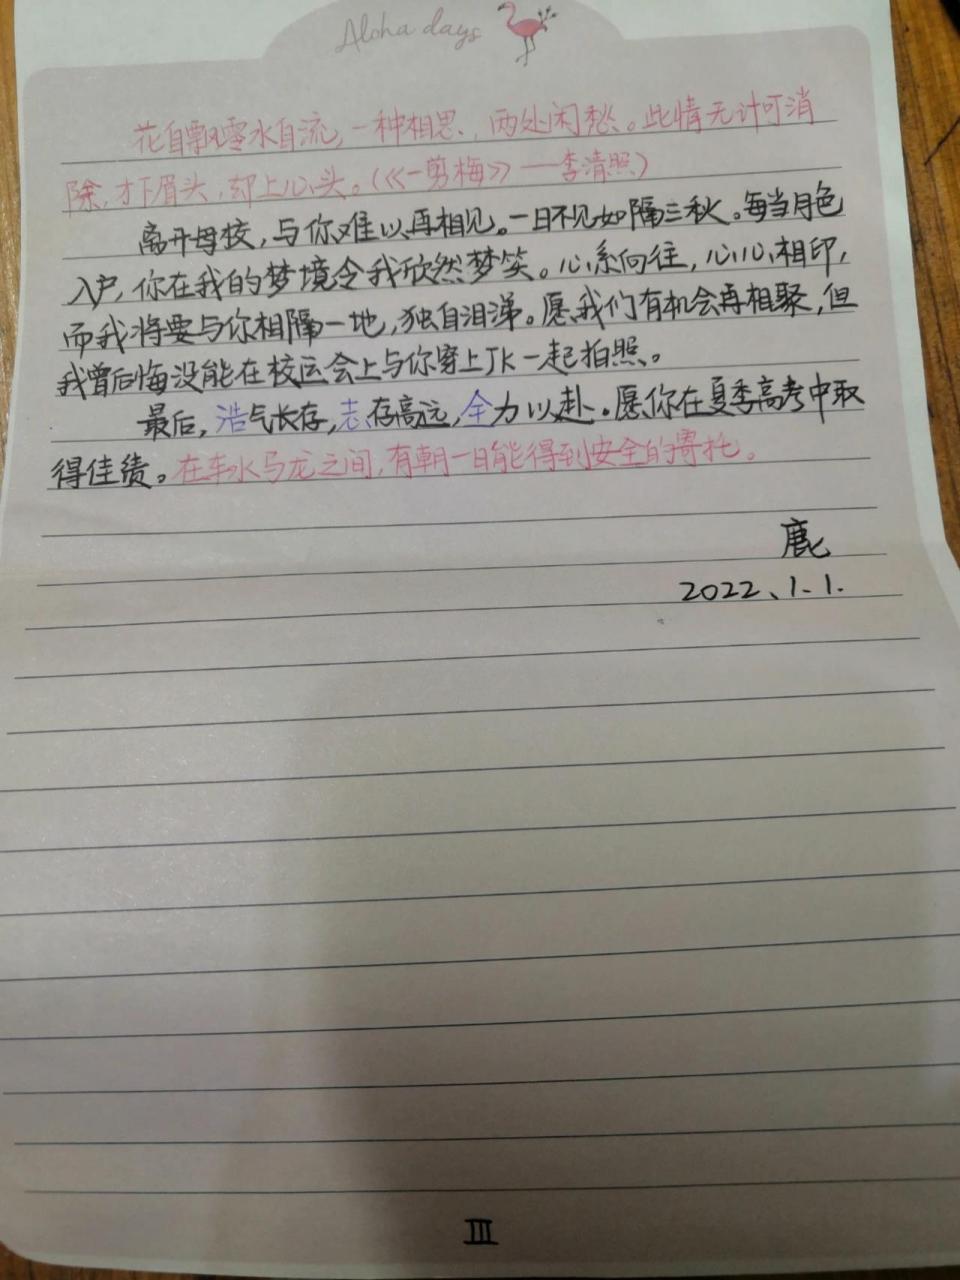 Aloha days
花自飘零水自流,一种相思,两处闲愁。此情无计可消
除,才下眉头,却上心头。(《一剪梅》——李清照)
离开母校,与你难以再相见。一日不见如隔三秋。每当月色
入户,你在我的梦境令我欣然梦笑。心系向往,心心相印,
而我将要与你相隔一地,独自泪涕。愿我们有机会再相聚,但
我曾后悔没能在校运会上与你穿上JK一起拍照。
最后,浩气长存,志存高远,全力以赴。愿你在夏季高考中取
得佳绩。在车水马龙之间,有朝一日能得到安全的寄托。
鹿
2022、1.1.
III